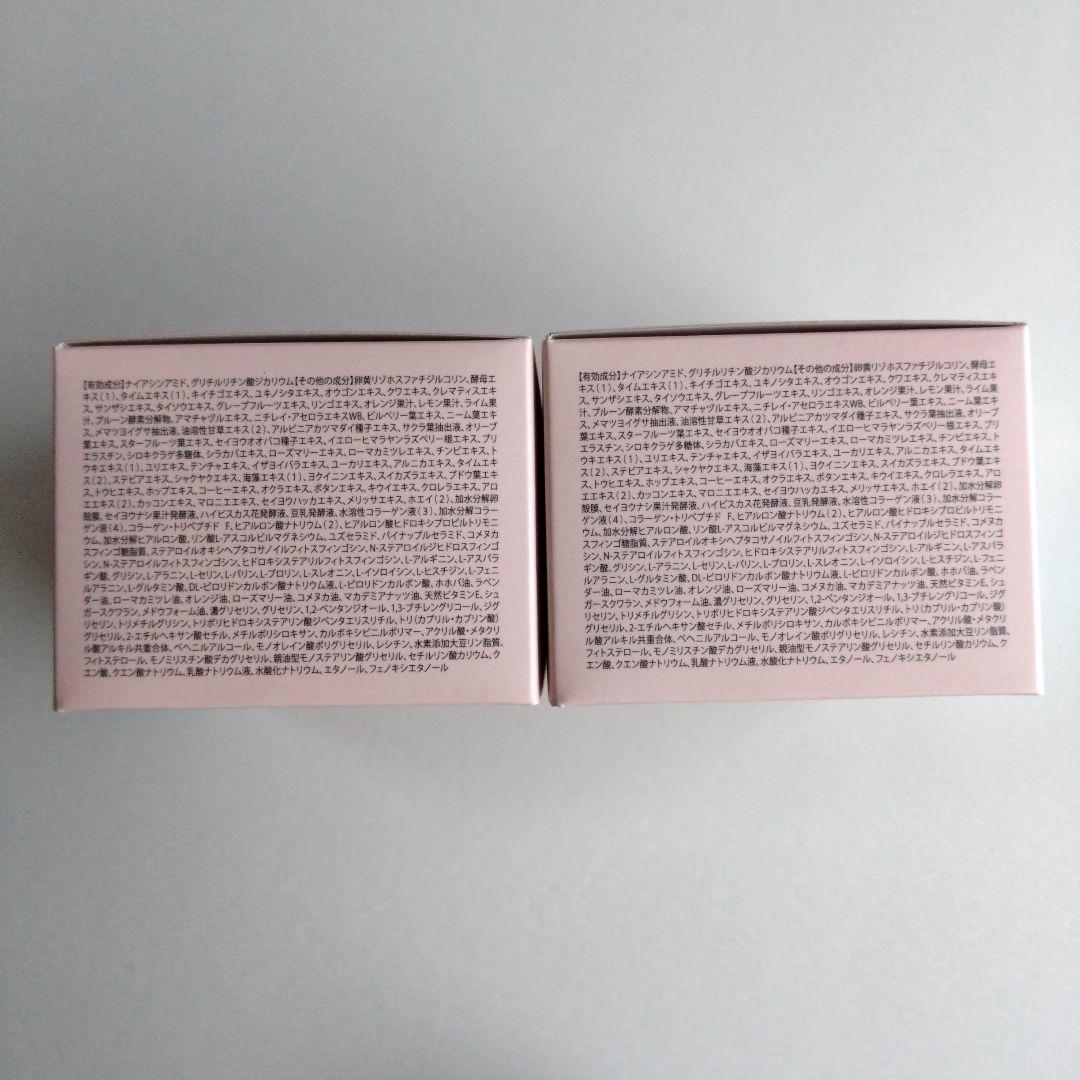 【有効成分】ナイアシンアミド、グリチルリチン酸ジカリウム【その他の成分】卵黄リゾホスファチジルコリン、酵母エ
キス(1)、タイムエキス(1)、キイチゴエキス、ユキノシタエキス、オウゴンエキス、クワエキス、クレマティスエキ
ス、サンザシエキス、タイソウエキス、グレープフルーツエキス、リンゴエキス、オレンジ果汁、レモン果汁、ライム果
汁、プルーン酵素分解物、アマチャヅルエキス、ニチレイ・アセロラエキスWB、ビルベリー葉エキス、ニーム葉エキ
ス、メマツヨイグサ抽出液、油溶性甘草エキス(2)、アルピニアカツマダイ種子エキス、サクラ葉抽出液、オリーブ
葉エキス、スターフルーツ葉エキス、セイヨウオオバコ種子エキス、イエローヒマラヤンラズベリー根エキス、プリ
エラスチン、シロキクラゲ多糖体、シラカバエキス、ローズマリーエキス、ローマカミツレエキス、チンピエキス、ト
ウキエキス(1)、ユリエキス、テンチャエキス、イザヨイバラエキス、ユーカリエキス、アルニカエキス、タイムエキ
ス(2)、ステビアエキス、シャクヤクエキス、海藻エキス(1)、ヨクイニンエキス、スイカズラエキス、ブドウ葉エキ
ス、トウヒエキス、ホップエキス、コーヒーエキス、オクラエキス、ボタンエキス、キウイエキス、クロレラエキス、アロ
エエキス(2)、カッコンエキス、マロニエエキス、セイヨウハッカエキス、メリッサエキス、ホエイ(2)、加水分解卵
殻膜、セイヨウナシ果汁発酵液、ハイビスカス花発酵液、豆乳発酵液、水溶性コラーゲン液(3)、加水分解コラー
ゲン液(4)、コラーゲン・トリペプチド F、ヒアルロン酸ナトリウム(2)、ヒアルロン酸ヒドロキシプロピルトリモニ
ウム、加水分解ヒアルロン酸、リン酸L-アスコルビルマグネシウム、ユズセラミド、パイナップルセラミド、コメヌカ
スフィンゴ糖脂質、ステアロイルオキシヘプタコサノイルフィトスフィンゴシン、N-ステアロイルジヒドロスフィンゴ
シン、N-ステアロイルフィトスフィンゴシン、ヒドロキシステアリルフィトスフィンゴシン、L-アルギニン、L-アスパラ
ギン酸、グリシン、L-アラニン、L-セリン、L-バリン、L-プロリン、L-スレオニン、L-イソロイシン、L-ヒスチジン、L-フェニ
ルアラニン、L-グルタミン酸、DL-ピロリドンカルボン酸ナトリウム液、L-ピロリドンカルボン酸、ホホバ油、ラベン
ダー油、ローマカミツレ油、オレンジ油、ローズマリー油、コメヌカ油、マカデミアナッツ油、天然ビタミンE、シュ
ガースクワラン、メドウフォーム油、濃グリセリン、グリセリン、1,2-ペンタンジオール、1,3-ブチレングリコール、ジグ
リセリン、トリメチルグリシン、トリポリヒドロキシステアリン酸ジペンタエリスリチル、トリ(カプリル・カプリン酸)
グリセリル、2-エチルヘキサン酸セチル、メチルポリシロキサン、カルボキシビニルポリマー、アクリル酸・メタクリ
ル酸アルキル共重合体、ベヘニルアルコール、モノオレイン酸ポリグリセリル、レシチン、水素添加大豆リン脂質、
フィトステロール、モノミリスチン酸デカグリセリル、親油型モノステアリン酸グリセリル、セチルリン酸カリウム、ク
エン酸、クエン酸ナトリウム、乳酸ナトリウム液、水酸化ナトリウム、エタノール、フェノキシエタノール
【有効成分】ナイアシンアミド、グリチルリチン酸ジカリウム【その他の成分】卵黄リゾホスファチジルコリン、酵母エ
キス(1)、タイムエキス(1)、キイチゴエキス、ユキノシタエキス、オウゴンエキス、クワエキス、クレマティスエキ
ス、サンザシエキス、タイソウエキス、グレープフルーツエキス、リンゴエキス、オレンジ果汁、レモン果汁、ライム果
汁、プルーン酵素分解物、アマチャヅルエキス、ニチレイ・アセロラエキスWB、ビルベリー葉エキス、ニーム葉エキ
ス、メマツヨイグサ抽出液、油溶性甘草エキス(2)、アルピニアカツマダイ種子エキス、サクラ葉抽出液、オリーブ
葉エキス、スターフルーツ葉エキス、セイヨウオオバコ種子エキス、イエローヒマラヤンラズベリー根エキス、プリ
エラスチン、シロキクラゲ多糖体、シラカバエキス、ローズマリーエキス、ローマカミツレエキス、チンピエキス、ト
ウキエキス(1)、ユリエキス、テンチャエキス、イザヨイバラエキス、ユーカリエキス、アルニカエキス、タイムエキ
ス(2)、ステビアエキス、シャクヤクエキス、海藻エキス(1)、ヨクイニンエキス、スイカズラエキス、ブドウ葉エキ
ス、トウヒエキス、ホップエキス、コーヒーエキス、オクラエキス、ボタンエキス、キウイエキス、クロレラエキス、アロ
エエキス(2)、カッコンエキス、マロニエエキス、セイヨウハッカエキス、メリッサエキス、ホエイ(2)、加水分解卵
殻膜、セイヨウナシ果汁発酵液、ハイビスカス花発酵液、豆乳発酵液、水溶性コラーゲン液(3)、加水分解コラー
ゲン液(4)、コラーゲン・トリペプチド F、ヒアルロン酸ナトリウム(2)、ヒアルロン酸ヒドロキシプロピルトリモニ
ウム、加水分解ヒアルロン酸、リン酸L-アスコルビルマグネシウム、ユズセラミド、パイナップルセラミド、コメヌカ
スフィンゴ糖脂質、ステアロイルオキシヘプタコサノイルフィトスフィンゴシン、N-ステアロイルジヒドロスフィンゴ
シン、N-ステアロイルフィトスフィンゴシン、ヒドロキシステアリルフィトスフィンゴシン、L-アルギニン、L-アスパラ
ギン酸、グリシン、L-アラニン、L-セリン、L-バリン、L-プロリン、L-スレオニン、L-イソロイシン、L-ヒスチジン、L-フェニ
ルアラニン、L-グルタミン酸、DL-ピロリドンカルボン酸ナトリウム液、L-ピロリドンカルボン酸、ホホバ油、ラベン
ダー油、ローマカミツレ油、オレンジ油、ローズマリー油、コメヌカ油、マカデミアナッツ油、天然ビタミンE、シュ
ガースクワラン、メドウフォーム油、濃グリセリン、グリセリン、1,2-ペンタンジオール、1,3-ブチレングリコール、ジグ
リセリン、トリメチルグリシン、トリポリヒドロキシステアリン酸ジペンタエリスリチル、トリ(カプリル・カプリン酸)
グリセリル、2-エチルヘキサン酸セチル、メチルポリシロキサン、カルボキシビニルポリマー、アクリル酸・メタクリ
ル酸アルキル共重合体、ベヘニルアルコール、モノオレイン酸ポリグリセリル、レシチン、水素添加大豆リン脂質、
フィトステロール、モノミリスチン酸デカグリセリル、親油型モノステアリン酸グリセリル、セチルリン酸カリウム、ク
エン酸、クエン酸ナトリウム、乳酸ナトリウム液、水酸化ナトリウム、エタノール、フェノキシエタノール